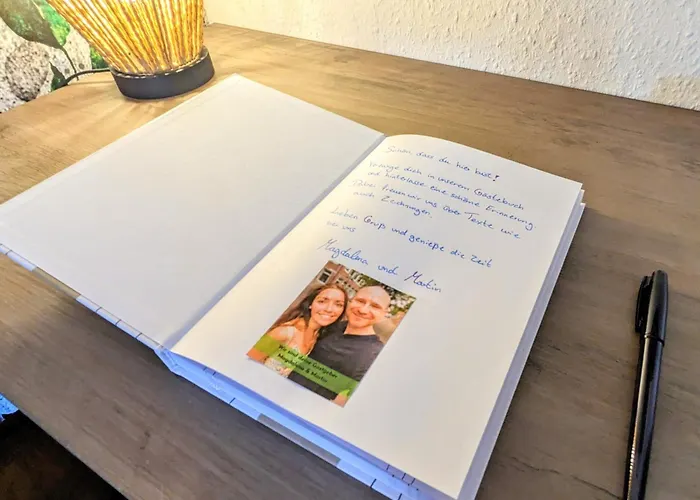 Schön, dass du hier bist!
Verewige dich in unserem Gästebuch
und hinterlasse eine schöne Erinnerung.
Dabei freuen wir uns über Texte wie
auch Zeichnungen.
Lieben Gruß und genieße die Zeit
bei uns
Magdalena und Martin
Wir sind deine Gastgeber
Magdalena & Martin